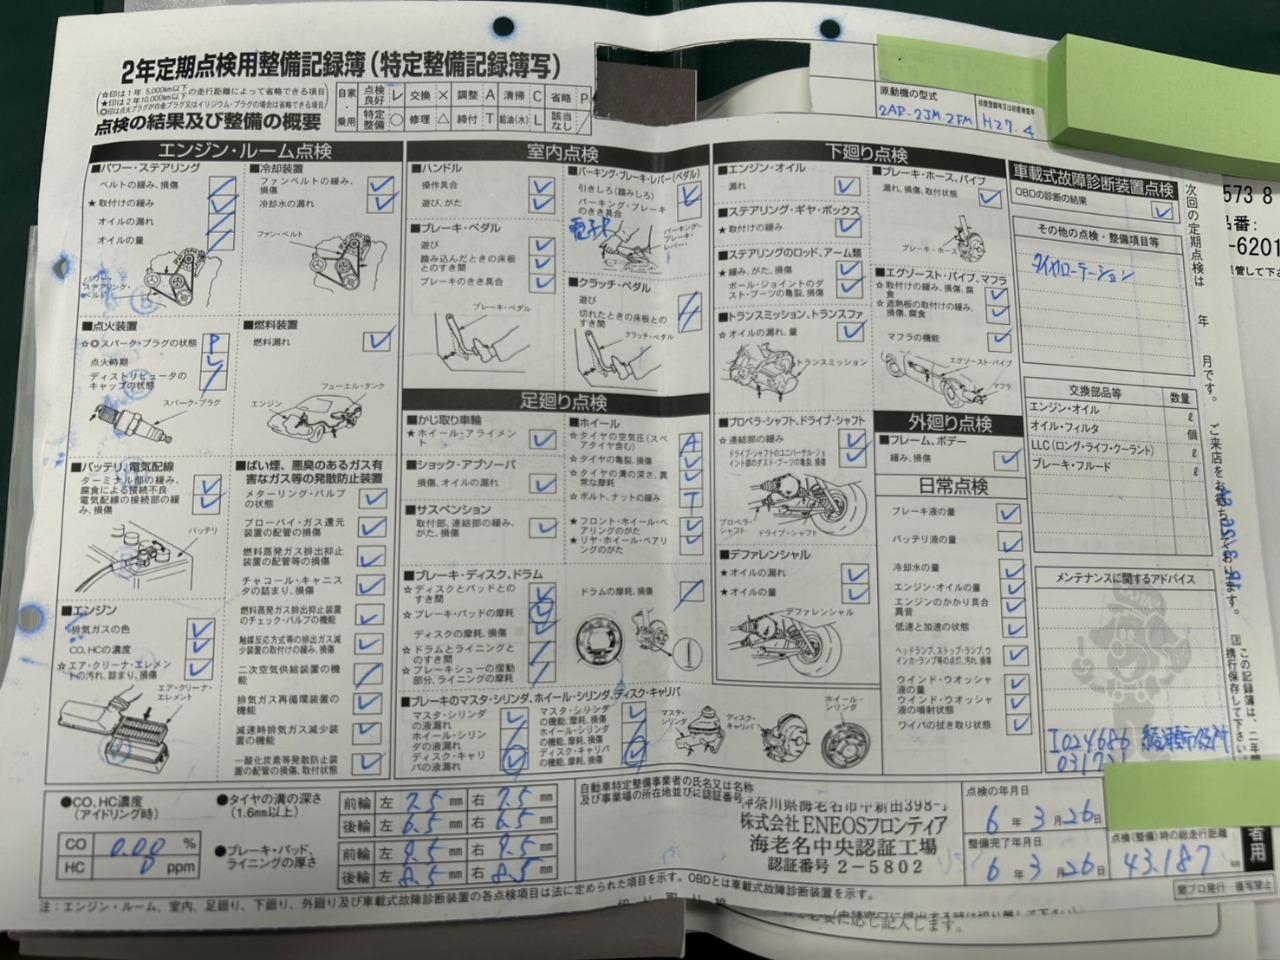 2年定期点検用整備記録簿（特定整備記録簿写）
☆印は1年 5,000km以下の走行距離によって省略できる項目
★印は2年10,000km以下
点検の結果及び整備の概要
自家・乗用
点検良好 レ 交換 × 調整 A 清掃 C 省略 P
特定整備 ○ 修理 △ 締付 T 給油(水) L 該当なし ／
原動機の型式
2AR-2JM.2FM
H27.4
エンジン・ルーム点検
■パワー・ステアリング
ベルトの緩み、損傷
★取付けの緩み
オイルの漏れ
オイルの量
パワー・ステアリング・ベルト
■冷却装置
ファンベルトの緩み、損傷
冷却水の漏れ
ファン・ベルト
■点火装置
☆◎スパーク・プラグの状態 P
点火時期
ディストリビュータのキャップの状態
スパーク・プラグ
■燃料装置
燃料漏れ
フューエル・タンク
エンジン
■バッテリ、電気配線
ターミナル部の緩み、腐食による接続不良
電気配線の接続部の緩み、損傷
バッテリ
■エンジン
排気ガスの色
CO、HCの濃度
☆エア・クリーナ・エレメントの汚れ、詰まり、損傷
エア・クリーナ・エレメント
■ばい煙、悪臭のあるガス有害なガス等の発散防止装置
メターリング・バルブの状態
ブローバイ・ガス還元装置の配管の損傷
燃料蒸発ガス排出抑止装置の配管等の損傷
チャコール・キャニスタの詰まり、損傷
燃料蒸発ガス排出抑止装置のチェック・バルブの機能
触媒反応方式等の排出ガス減少装置の取付けの緩み、損傷
二次空気供給装置の機能
排気ガス再循環装置の機能
減速時排気ガス減少装置の機能
一酸化炭素等発散防止装置の配管の損傷、取付状態
室内点検
■ハンドル
操作具合
遊び、がた
■ブレーキ・ペダル
遊び
踏み込んだときの床板とのすき間
ブレーキのきき具合
ブレーキ・ペダル
■パーキング・ブレーキ・レバー(ペダル)
引きしろ(踏みしろ)
パーキング・ブレーキのきき具合
電子P
パーキング・ブレーキ・レバー
■クラッチ・ペダル
遊び
切れたときの床板とのすき間
クラッチ・ペダル
足廻り点検
■かじ取り車輪
★ホイール・アライメント
■ショック・アブソーバ
損傷、オイルの漏れ
■サスペンション
取付部、連結部の緩み、がた、損傷
■ホイール
☆タイヤの空気圧(スペアタイヤ含む) A
☆タイヤの亀裂、損傷
☆タイヤの溝の深さ、異常な摩耗
☆ボルト、ナットの緩み T
★フロント・ホイール・ベアリングのがた
★リヤ・ホイール・ベアリングのがた
■ブレーキ・ディスク、ドラム
☆ディスクとパッドとのすき間
☆ブレーキ・パッドの摩耗
ディスクの摩耗、損傷
☆ドラムとライニングとのすき間
☆ブレーキシューの摺動部分、ライニングの摩耗
ドラムの摩耗、損傷
■ブレーキのマスタ・シリンダ、ホイール・シリンダ、ディスク・キャリパ
マスタ・シリンダの液漏れ
ホイール・シリンダの液漏れ
ディスク・キャリパの液漏れ
マスタ・シリンダの機能、摩耗、損傷
ホイール・シリンダの機能、摩耗、損傷
ディスク・キャリパの機能、摩耗、損傷
マスタ・シリンダ
ディスク・キャリパ
ホイール・シリンダ
下廻り点検
■エンジン・オイル
漏れ
■ステアリング・ギヤ・ボックス
★取付けの緩み
■ステアリングのロッド、アーム類
★緩み、がた、損傷
ボール・ジョイントのダスト・ブーツの亀裂、損傷
■トランスミッション、トランスファ
☆オイルの漏れ、量
トランスミッション
■プロペラ・シャフト、ドライブ・シャフト
☆連結部の緩み
ドライブ・シャフトのユニバーサル・ジョイント部のダスト・ブーツの亀裂、損傷
プロペラ・シャフト
ドライブ・シャフト
■デファレンシャル
★オイルの漏れ
★オイルの量
デファレンシャル
■ブレーキ・ホース、パイプ
漏れ、損傷、取付状態
ブレーキ・ホース
■エグゾースト・パイプ、マフラ
☆取付けの緩み、損傷、腐食
☆遮熱板の取付けの緩み、損傷、腐食
マフラの機能
エグゾースト・パイプ
マフラ
外廻り点検
■フレーム、ボデー
緩み、損傷
日常点検
ブレーキ液の量
バッテリ液の量
冷却水の量
エンジン・オイルの量
エンジンのかかり具合 異音
低速と加速の状態
ヘッドランプ、ストップ・ランプ、ウインカ・ランプ等の点灯、汚れ、損傷
ウインド・ウオッシャ液の量
ウインド・ウオッシャ液の噴射状態
ワイパの拭き取り状態
車載式故障診断装置点検
OBDの診断の結果
その他の点検・整備項目等
タイヤローテーション
交換部品等 数量
エンジン・オイル ℓ
オイル・フィルタ 個
LLC(ロング・ライフ・クーラント) ℓ
ブレーキ・フルード ℓ
メンテナンスに関するアドバイス
I024686
次回の定期点検は 年 月です。ご来店をお待ちしております。
573 8
品番:
-6201
●CO、HC濃度(アイドリング時)
CO 0.00 %
HC 0 ppm
●タイヤの溝の深さ(1.6mm以上)
前輪 左 7.5 mm 右 7.5 mm
後輪 左 6.5 mm 右 6.5 mm
●ブレーキ・パッド、ライニングの厚さ
前輪 左 9.5 mm 右 9.5 mm
後輪 左 8.5 mm 右 8.5 mm
自動車特定整備事業者の氏名又は名称及び事業場の所在地並びに認証番号
神奈川県海老名市中新田398-1
株式会社ENEOSフロンティア
海老名中央認証工場
認証番号 2-5802
点検の年月日
6年 3月 26日
整備完了年月日
6年 3月 26日
点検(整備)時の総走行距離
43,187 km
者用
注：エンジン・ルーム、室内、足廻り、下廻り、外廻り及び車載式故障診断装置の各点検項目は法に定められた項目を示す。OBDとは車載式故障診断装置を示す。
関プロ発行 複写禁止